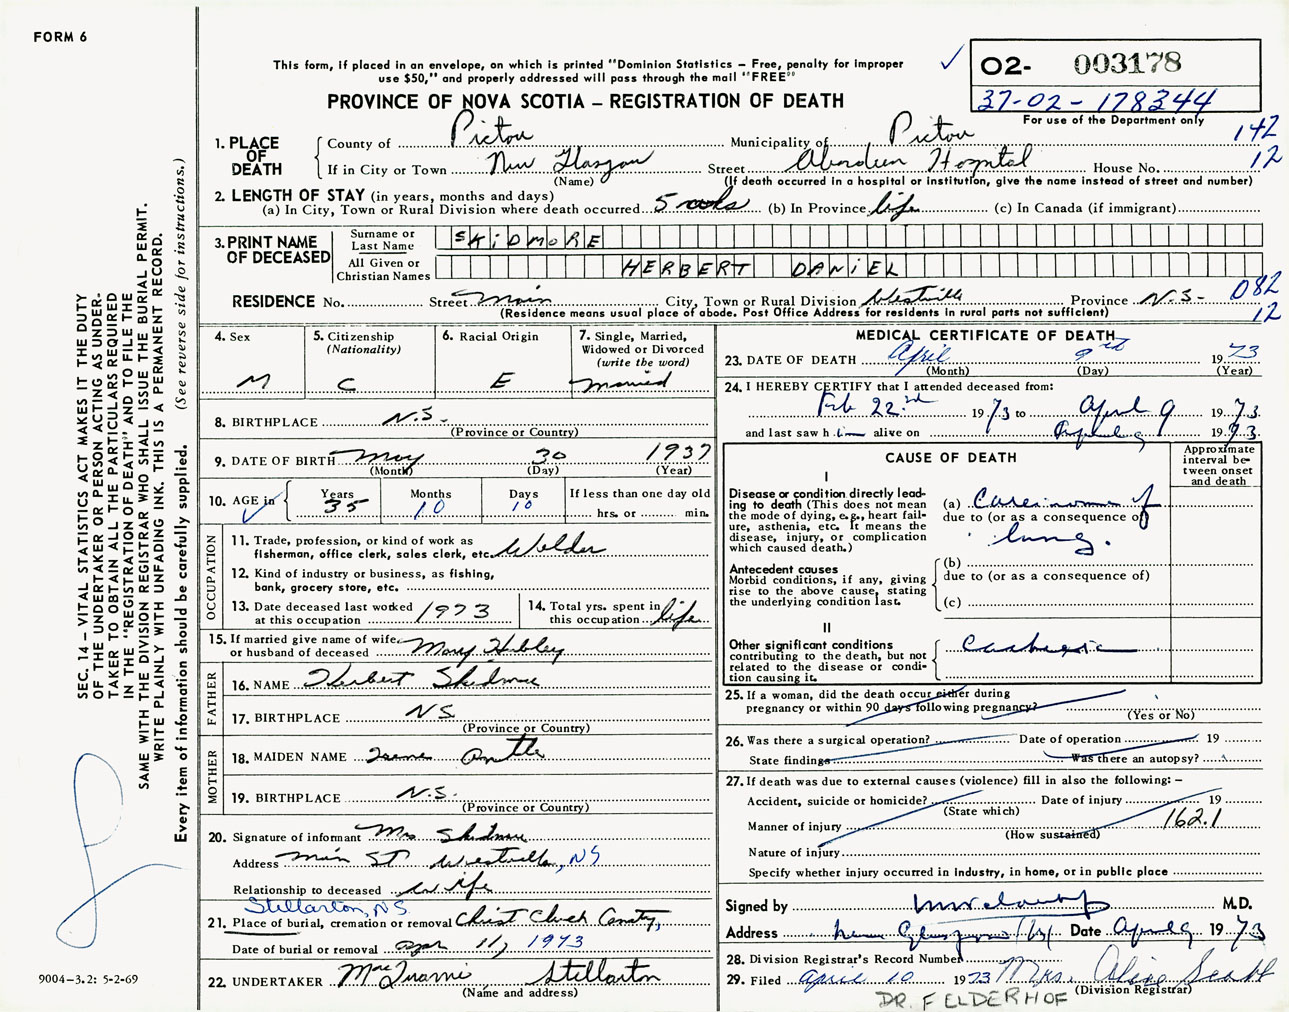 FORM 6
This form, if placed in an envelope, on which is printed "Dominion Statistics – Free, penalty for improper
use $50," and properly addressed will pass through the mail "FREE"
PROVINCE OF NOVA SCOTIA – REGISTRATION OF DEATH
✓ 02- 003178
37-02-178344
For use of the Department only
142
12
1. PLACE OF DEATH
County of Pictou Municipality of Pictou
If in City or Town New Glasgow Street Aberdeen Hospital House No.
(Name) (If death occurred in a hospital or institution, give the name instead of street and number)
2. LENGTH OF STAY (in years, months and days)
(a) In City, Town or Rural Division where death occurred 5 (b) In Province life (c) In Canada (if immigrant)
3. PRINT NAME OF DECEASED
Surname or Last Name SKIDMORE
All Given or Christian Names HERBERT DANIEL
RESIDENCE No. Street Main City, Town or Rural Division Westville Province N.S. 082
12
(Residence means usual place of abode. Post Office Address for residents in rural parts not sufficient)
4. Sex M
5. Citizenship (Nationality) C
6. Racial Origin E
7. Single, Married, Widowed or Divorced (write the word) Married
8. BIRTHPLACE N.S.
(Province or Country)
9. DATE OF BIRTH May 30 1937
(Month) (Day) (Year)
10. AGE in ✓ Years 35 Months 10 Days 10 If less than one day old
hrs. or min.
OCCUPATION
11. Trade, profession, or kind of work as
fisherman, office clerk, sales clerk, etc. Welder
12. Kind of industry or business, as fishing,
bank, grocery store, etc.
13. Date deceased last worked at this occupation 1973
14. Total yrs. spent in this occupation life
15. If married give name of wife
or husband of deceased Mary
FATHER
16. NAME Herbert Skidmore
17. BIRTHPLACE NS
(Province or Country)
MOTHER
18. MAIDEN NAME Irene
19. BIRTHPLACE N.S.
(Province or Country)
20. Signature of informant Mrs Skidmore
Address Main St Westville, NS
Relationship to deceased Wife
Stellarton, N.S.
21. Place of burial, cremation or removal Christ Church Cemetery,
Date of burial or removal Apr 11, 1973
22. UNDERTAKER Stellarton
(Name and address)
MEDICAL CERTIFICATE OF DEATH
23. DATE OF DEATH April 9 1973
(Month) (Day) (Year)
24. I HEREBY CERTIFY that I attended deceased from:
Feb 22nd 1973 to April 9 1973
and last saw him alive on April 9 1973
CAUSE OF DEATH
Approximate interval between onset and death
I
Disease or condition directly lead-
ing to death (This does not mean
the mode of dying, e.g., heart fail-
ure, asthenia, etc. It means the
disease, injury, or complication
which caused death.)
(a) Carcinoma of
due to (or as a consequence of)
lung.
Antecedent causes
Morbid conditions, if any, giving
rise to the above cause, stating
the underlying condition last.
(b)
due to (or as a consequence of)
(c)
II
Other significant conditions
contributing to the death, but not
related to the disease or condi-
tion causing it.
Cachexia
25. If a woman, did the death occur either during
pregnancy or within 90 days following pregnancy?
(Yes or No)
26. Was there a surgical operation? Date of operation 19
State findings Was there an autopsy?
27. If death was due to external causes (violence) fill in also the following: –
Accident, suicide or homicide? Date of injury 19
(State which)
Manner of injury 162.1
(How sustained)
Nature of injury
Specify whether injury occurred in industry, in home, or in public place
Signed by M.D.
Address New Glasgow Date April 9 1973
28. Division Registrar's Record Number
29. Filed April 10 1973 Mrs.
(Division Registrar)
DR. FELDERHOF
SEC. 14 – VITAL STATISTICS ACT MAKES IT THE DUTY
OF THE UNDERTAKER OR PERSON ACTING AS UNDER-
TAKER TO OBTAIN ALL THE PARTICULARS REQUIRED
IN THE "REGISTRATION OF DEATH" AND TO FILE THE
SAME WITH THE DIVISION REGISTRAR WHO SHALL ISSUE THE BURIAL PERMIT.
WRITE PLAINLY WITH UNFADING INK. THIS IS A PERMANENT RECORD.
Every item of information should be carefully supplied. (See reverse side for instructions.)
9004-3.2: 5-2-69